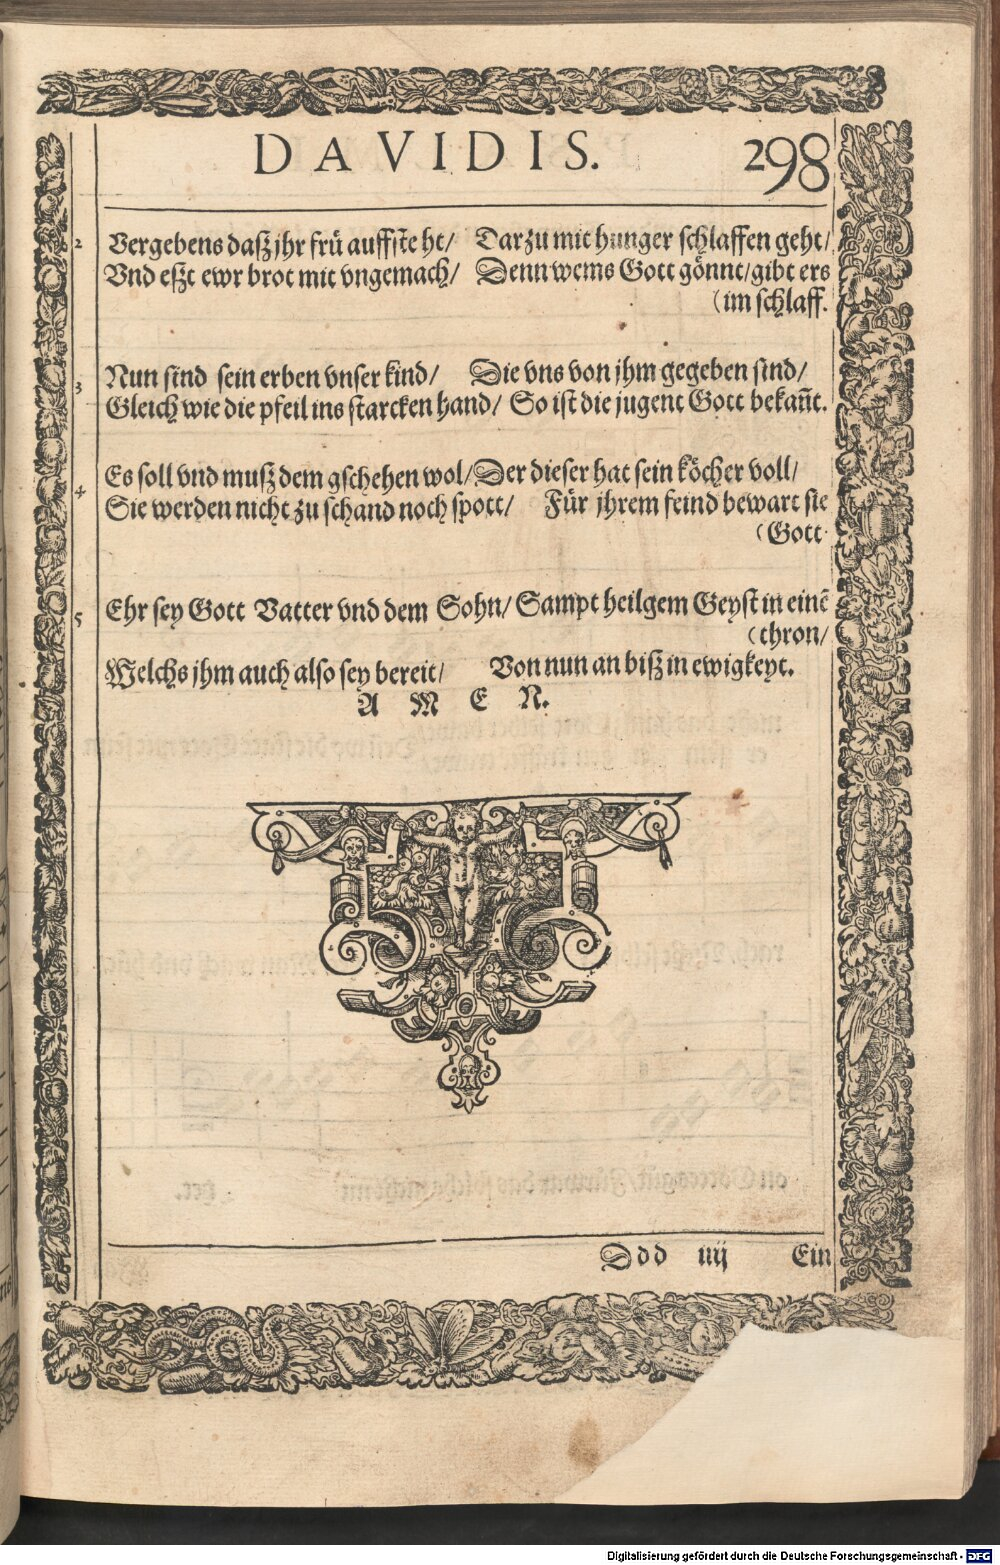 DAVIDIS. 298
2 Vergebens daß jhr frü auffsteht/ Darzu mit hunger schlaffen geht/
Vnd eßt ewr brot mit vngemach/ Denn wems Gott gönnt/gibt ers
(im schlaff.
3 Nun sind sein erben vnser kind/ Die vns von jhm gegeben sind/
Gleich wie die pfeil ins starcken hand/ So ist die jugent Gott bekañt.
4 Es soll vnd muß dem gschehen wol/ Der dieser hat sein köcher voll/
Sie werden nicht zu schand noch spott/ Für jhrem feind bewart sie
(Gott
5 Ehr sey Gott Vatter vnd dem Sohn/ Sampt heilgem Geyst in einē
(thron/
Welchs jhm auch also sey bereit/ Von nun an biß in ewigkeyt.
A M E N.
Ddd iiij Ein
Digitalisierung gefördert durch die Deutsche Forschungsgemeinschaft - DFG